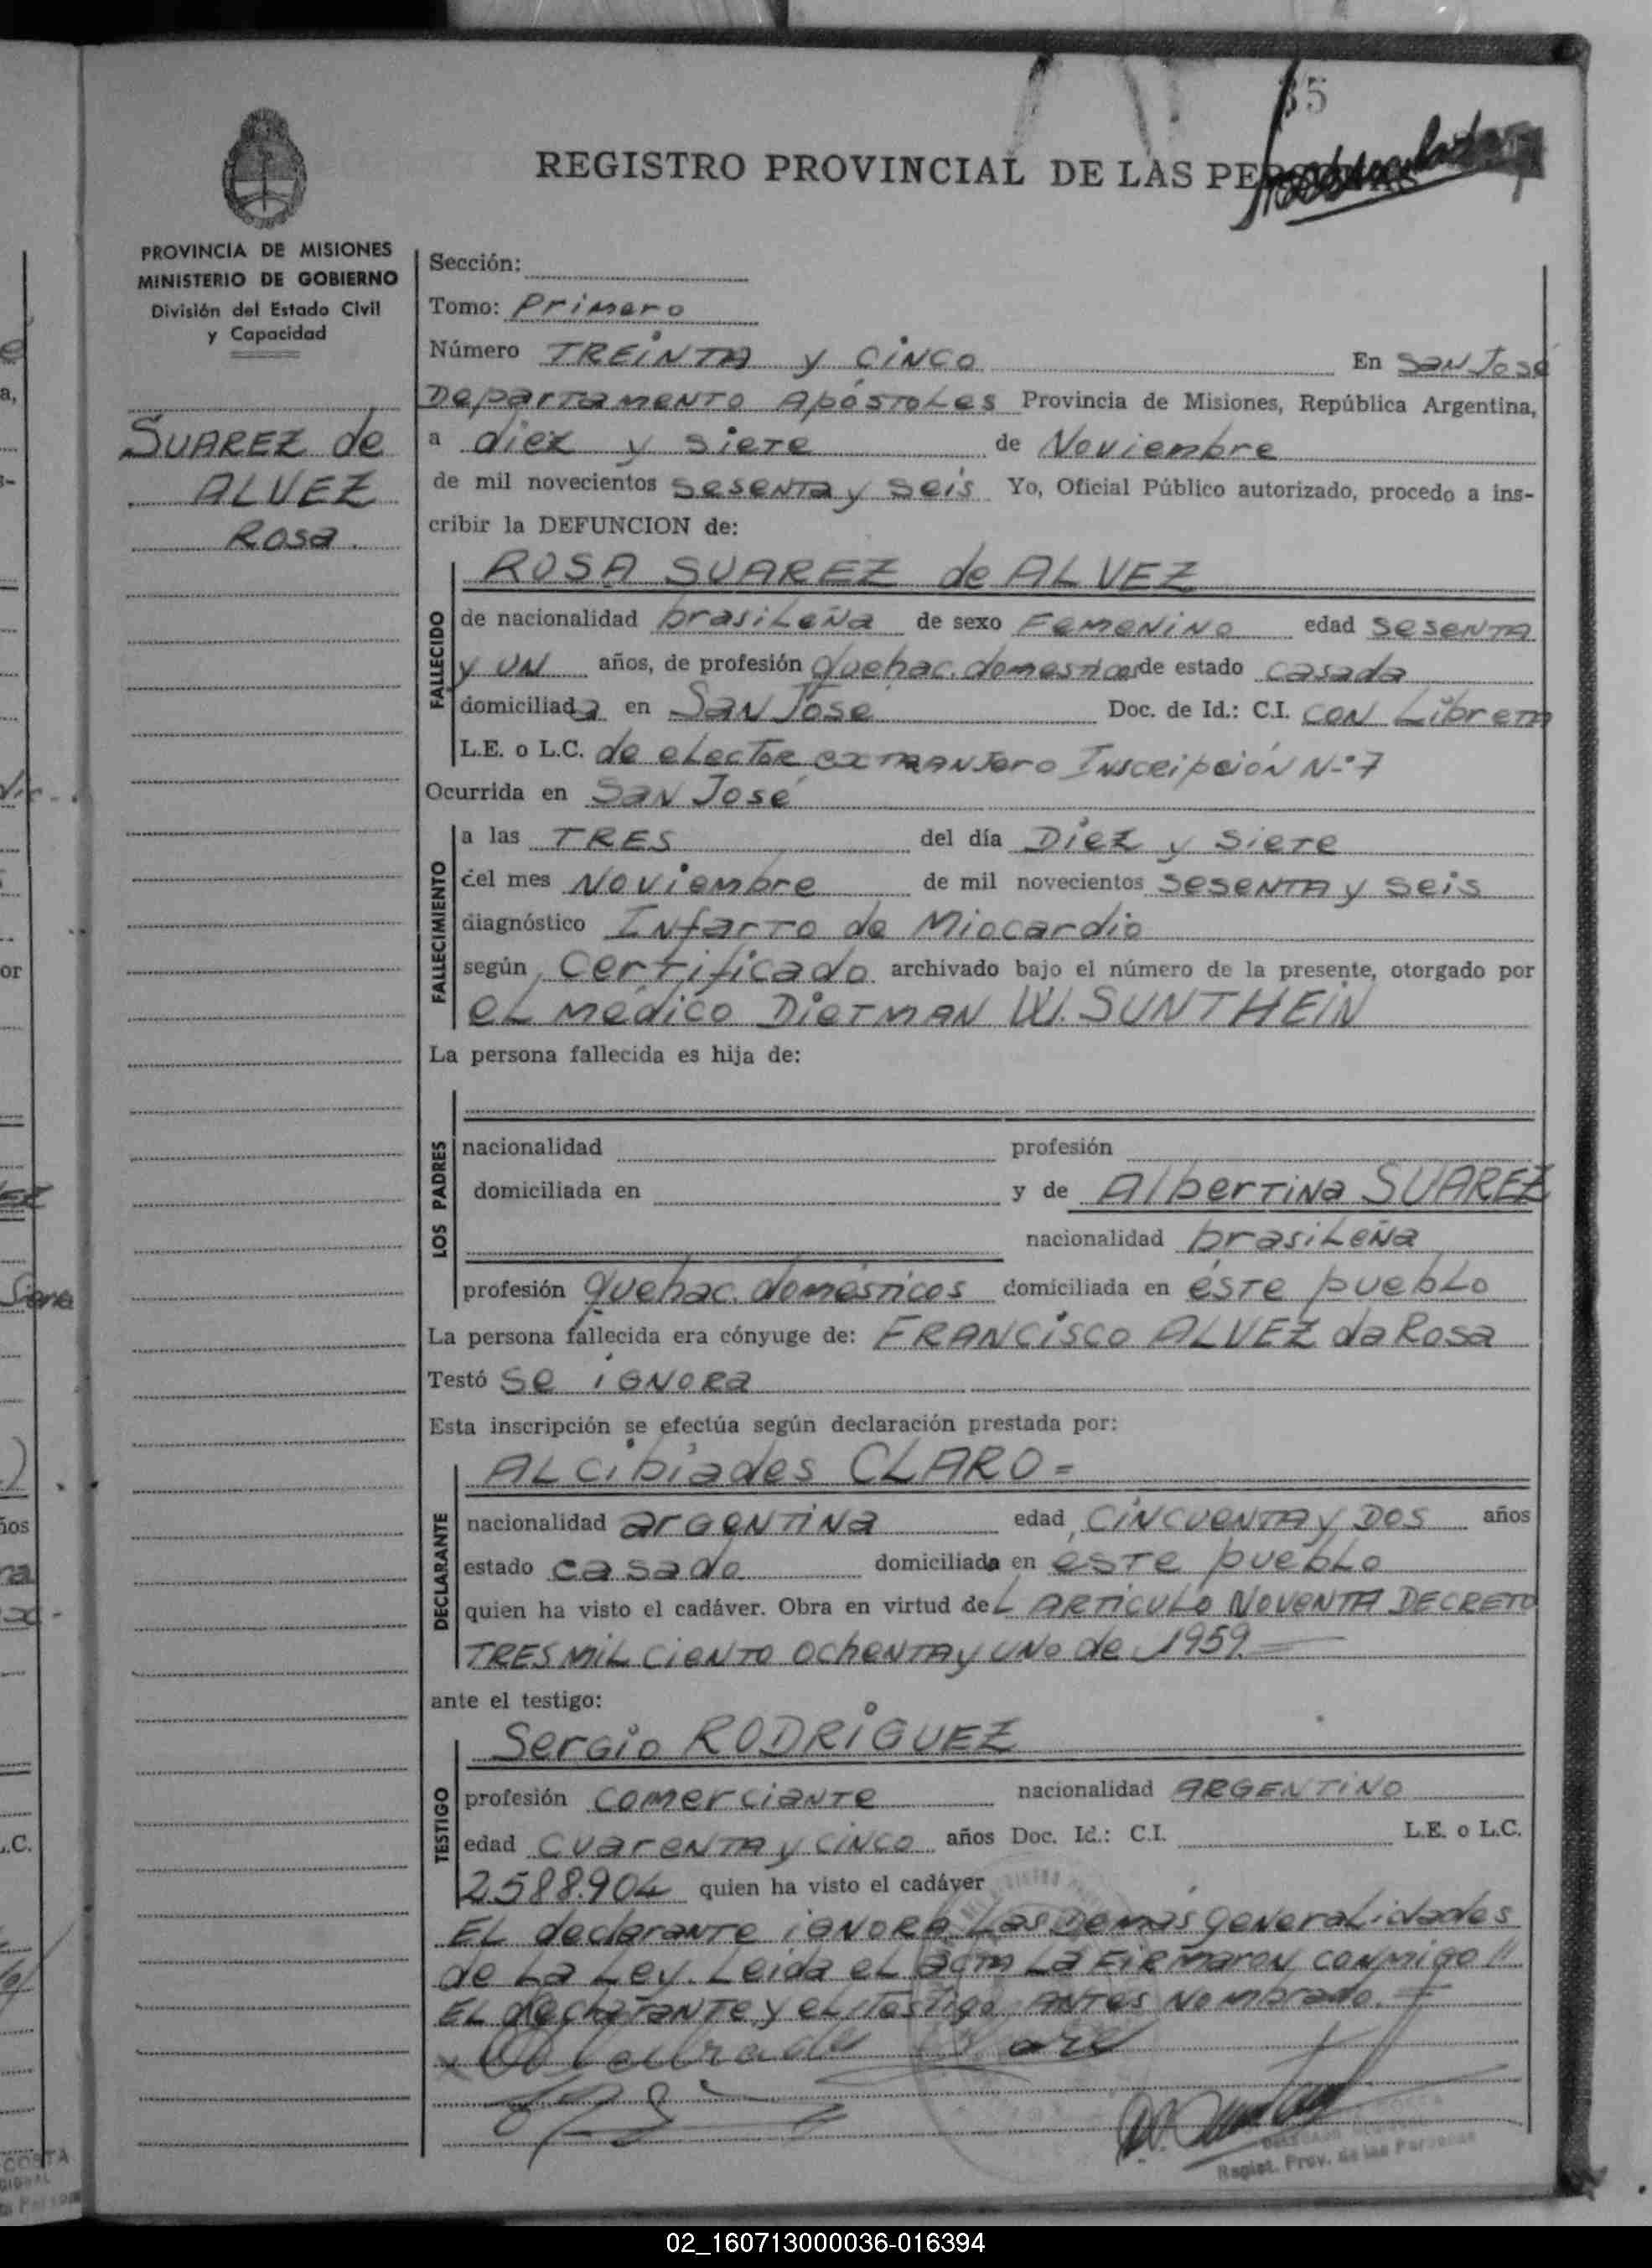 35
REGISTRO PROVINCIAL DE LAS
PROVINCIA DE MISIONES
MINISTERIO DE GOBIERNO
División del Estado Civil
y Capacidad
SUAREZ de
ALVEZ
Rosa
Sección:
Tomo: Primero
Número TREINTA y CINCO En SAN José
Departamento Apóstoles Provincia de Misiones, República Argentina,
a diez y siete de Noviembre
de mil novecientos sesenta y seis Yo, Oficial Público autorizado, procedo a ins-
cribir la DEFUNCION de:
ROSA SUAREZ de ALVEZ
FALLECIDO
de nacionalidad brasileña de sexo Femenino edad sesenta
y un años, de profesión quehac. domesticos de estado casada
domiciliada en San José Doc. de Id.: C.I. CON Libreta
L.E. o L.C. de elector extranjero Inscripción N°7
Ocurrida en San José
FALLECIMIENTO
a las TRES del día Diez y siete
del mes Noviembre de mil novecientos sesenta y seis
diagnóstico Infarto de Miocardio
según Certificado archivado bajo el número de la presente, otorgado por
el médico Dietman W. SUNTHEIN
La persona fallecida es hija de:
LOS PADRES
nacionalidad profesión
domiciliada en y de Albertina SUAREZ
nacionalidad brasileña
profesión quehac. domésticos domiciliada en éste pueblo
La persona fallecida era cónyuge de: FRANCISCO ALVEZ da Rosa
Testó se ignora
Esta inscripción se efectúa según declaración prestada por:
ALcibíades CLARO =
DECLARANTE
nacionalidad argentina edad cincuenta y dos años
estado casado domiciliada en éste pueblo
quien ha visto el cadáver. Obra en virtud del ARTICULO NOVENTA DECRETO
TRES MIL ciento ochenta y uno de 1959.=
ante el testigo:
Sergio RODRIGUEZ
TESTIGO
profesión comerciante nacionalidad ARGENTINO
edad cuarenta y cinco años Doc. Id.: C.I. L.E. o L.C.
2.588.904 quien ha visto el cadáver
El declarante ignora las demás generalidades
de la Ley. Leida el acta la firmaron conmigo
El declarante y el testigo antes nombrado.=
Regist. Prov. de las Personas
02_160713000036-016394